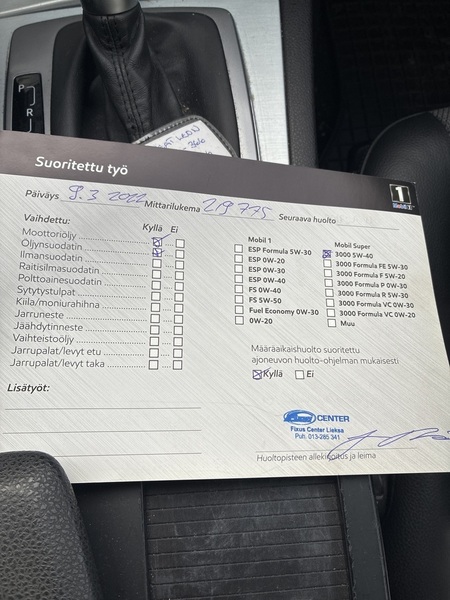 P
R
Suoritettu työ
1
Mobil 1
Päiväys 9.3 2022 Mittarilukema 219775 Seuraava huolto
Vaihdettu: Kyllä Ei
Moottoriöljy
Öljynsuodatin
Ilmansuodatin
Raitisilmasuodatin
Polttoainesuodatin
Sytytystulpat
Kiila/moniurahihna
Jarruneste
Jäähdytinneste
Vaihteistoöljy
Jarrupalat/levyt etu
Jarrupalat/levyt taka
Lisätyöt:
Mobil 1
ESP Formula 5W-30
ESP 0W-20
ESP 0W-30
ESP 0W-40
FS 0W-40
FS 5W-50
Fuel Economy 0W-30
0W-20
Mobil Super
3000 5W-40
3000 Formula FE 5W-30
3000 Formula F 5W-20
3000 Formula P 0W-30
3000 Formula R 5W-30
3000 Formula VC 0W-30
3000 Formula VC 0W-20
Muu
Määräaikaishuolto suoritettu
ajoneuvon huolto-ohjelman mukaisesti
Kyllä Ei
Fixus CENTER
Fixus Center Lieksa
Puh. 013-285 341
Huoltopisteen allekirjoitus ja leima